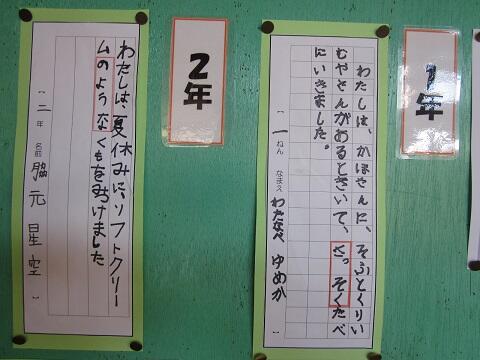 1年
わたしは、かほさんに、そふとくりい
むやさんがあるときいて、さっそくたべ
にいきました。
〔一ねん なまえ わたなべ ゆめか〕
2年
わたしは、夏休みに、ソフトクリー
ムのようなくもをみつけました
〔二年 名前 脇元星空〕